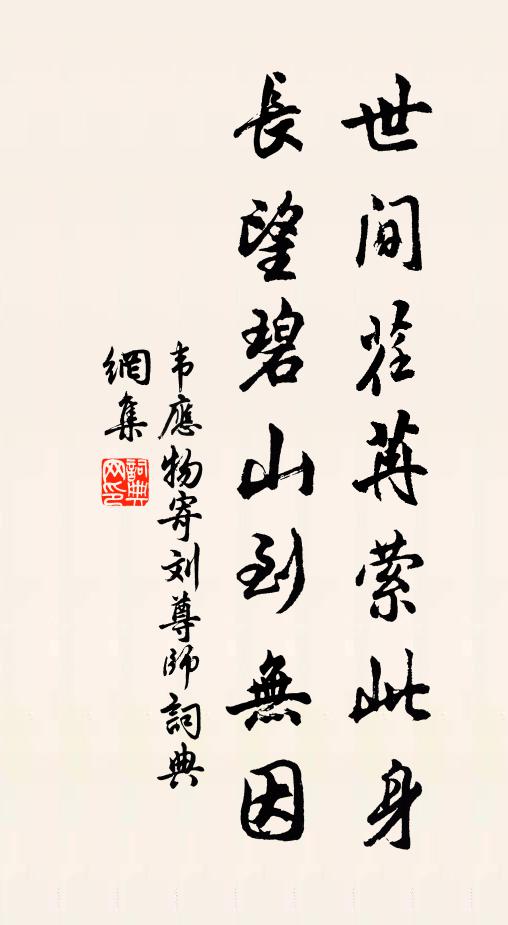 世间荏苒萦此身
長望碧山到無因
韦應物寄刘尊師詞典
網集
詞典
网印